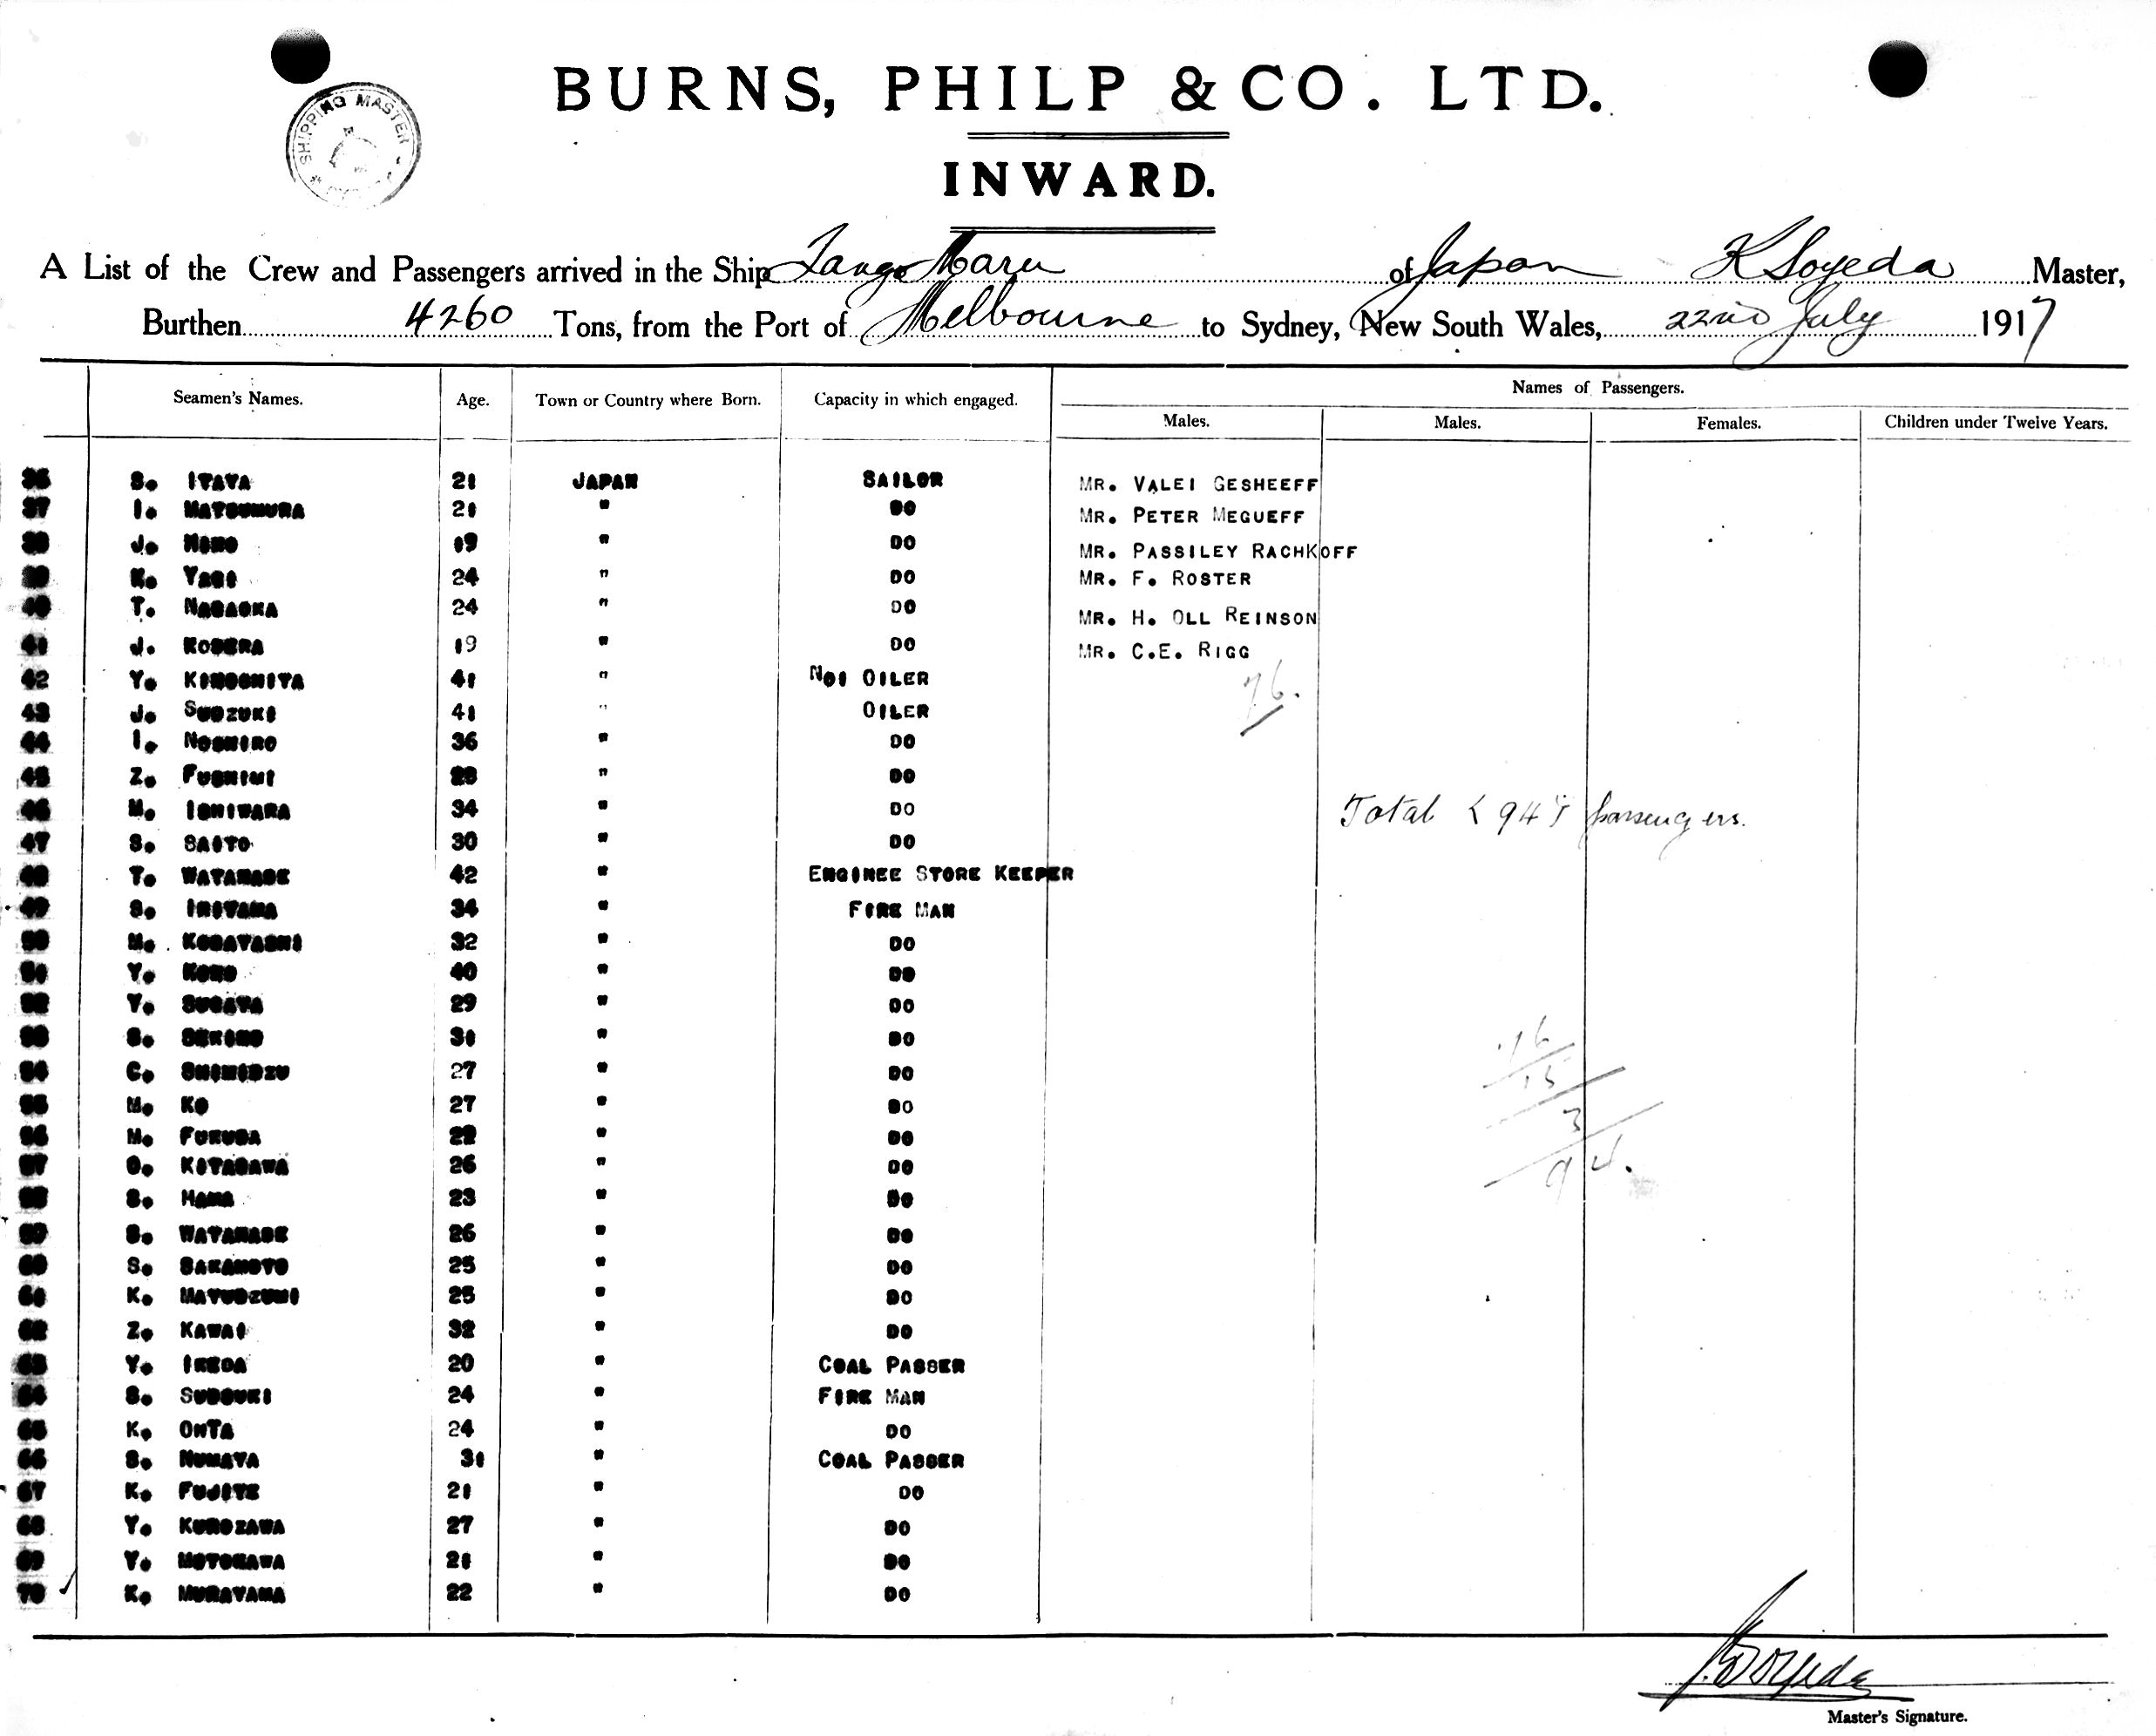 SHIPPING MASTER
BURNS, PHILP & CO. LTD.
INWARD.
A List of the Crew and Passengers arrived in the Ship Tango Maru of Japan K Soyeda Master,
Burthen 4260 Tons, from the Port of Melbourne to Sydney, New South Wales, 22nd July 1917
Seamen's Names. Age. Town or Country where Born. Capacity in which engaged. Names of Passengers.
Males. Males. Females. Children under Twelve Years.
36 S. ITAYA 21 JAPAN SAILOR MR. VALEI GESHEEFF
37 I. MATSUMURA 21 " DO MR. PETER MEGUEFF
38 J. 19 " DO MR. PASSILEY RACHKOFF
39 K. YAGI 24 " DO MR. F. ROSTER
40 T. NAGAOKA 24 " DO MR. H. OLL REINSON
41 J. 19 " DO MR. C.E. RIGG
42 Y. KINOSHITA 41 " NO1 OILER 76.
43 J. SUDZUKI 41 " OILER
44 I. NOSHIRO 36 " DO
45 Z. FUSHIMI 28 " DO
46 M. ISHIWARA 34 " DO Total < 94 > passengers.
47 S. SAITO 30 " DO
48 T. WATANABE 42 " ENGINEE STORE KEEPER
49 S. IRIYAMA 34 " FIRE MAN
50 M. KOBAYASHI 32 " DO
51 Y. KONO 40 " DO
52 Y. SUGAYA 29 " DO
53 S. SEKINO 31 " DO 76
54 C. SHIMIDZU 27 " DO 15
55 M. KO 27 " DO 3
56 M. FUKUDA 22 " DO
57 O. KITAGAWA 26 " DO 94.
58 S. HAMA 23 " DO
59 S. WATANABE 26 " DO
60 S. SAKAMOTO 25 " DO
61 K. MAYUDZUMI 25 " DO
62 Z. KAWAI 32 " DO
63 Y. IKEDA 20 " COAL PASSER
64 S. SUDOUKI 24 " FIRE MAN
65 K. OHTA 24 " DO
66 S. NUMAYA 31 " COAL PASSER
67 K. FUJIYE 21 " DO
68 Y. KUROZAWA 27 " DO
69 Y. MOTOKAWA 21 " DO
70 K. MURAYAMA 22 " DO
K Soyeda
Master's Signature.